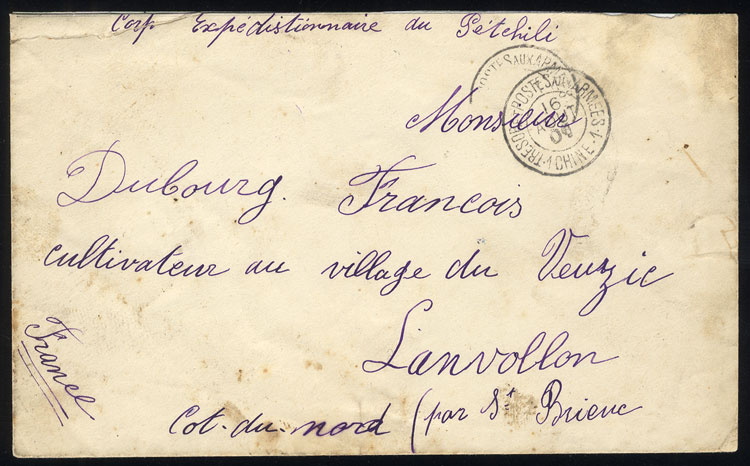 Corp Expédistionnaire du Pétchili
POSTES AUX ARMÉES
TRESOR ET POSTES AUX ARMEES
16
CHINE 1
Monsieur
Dubourg Francois
cultivateur au village du Veuzic
Lanvollon
France
Cot-du-nord (par St Brieuc